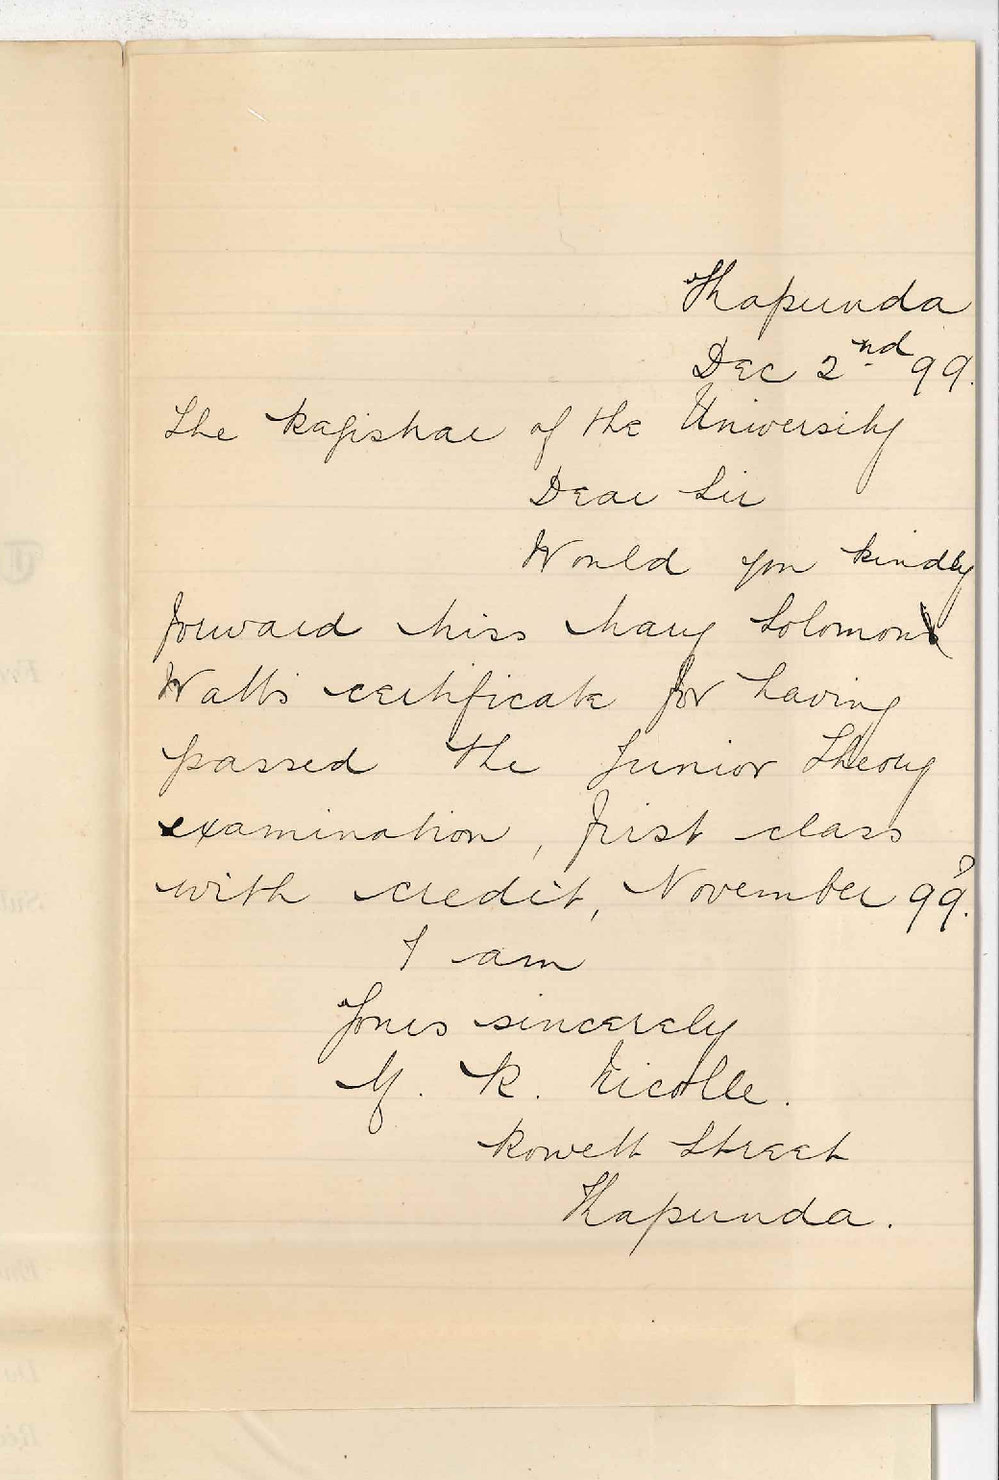 Kapunda
Dec 2nd 99.
The Registrar of the University
Dear Sir
Would you kindly
forward Miss Mary Solomon
Watts certificate for having
passed the Junior Theory
examination, first class
with credit, November 99?
I am
Yours sincerely
M. R. Nicolle.
Rowett Street
Kapunda.